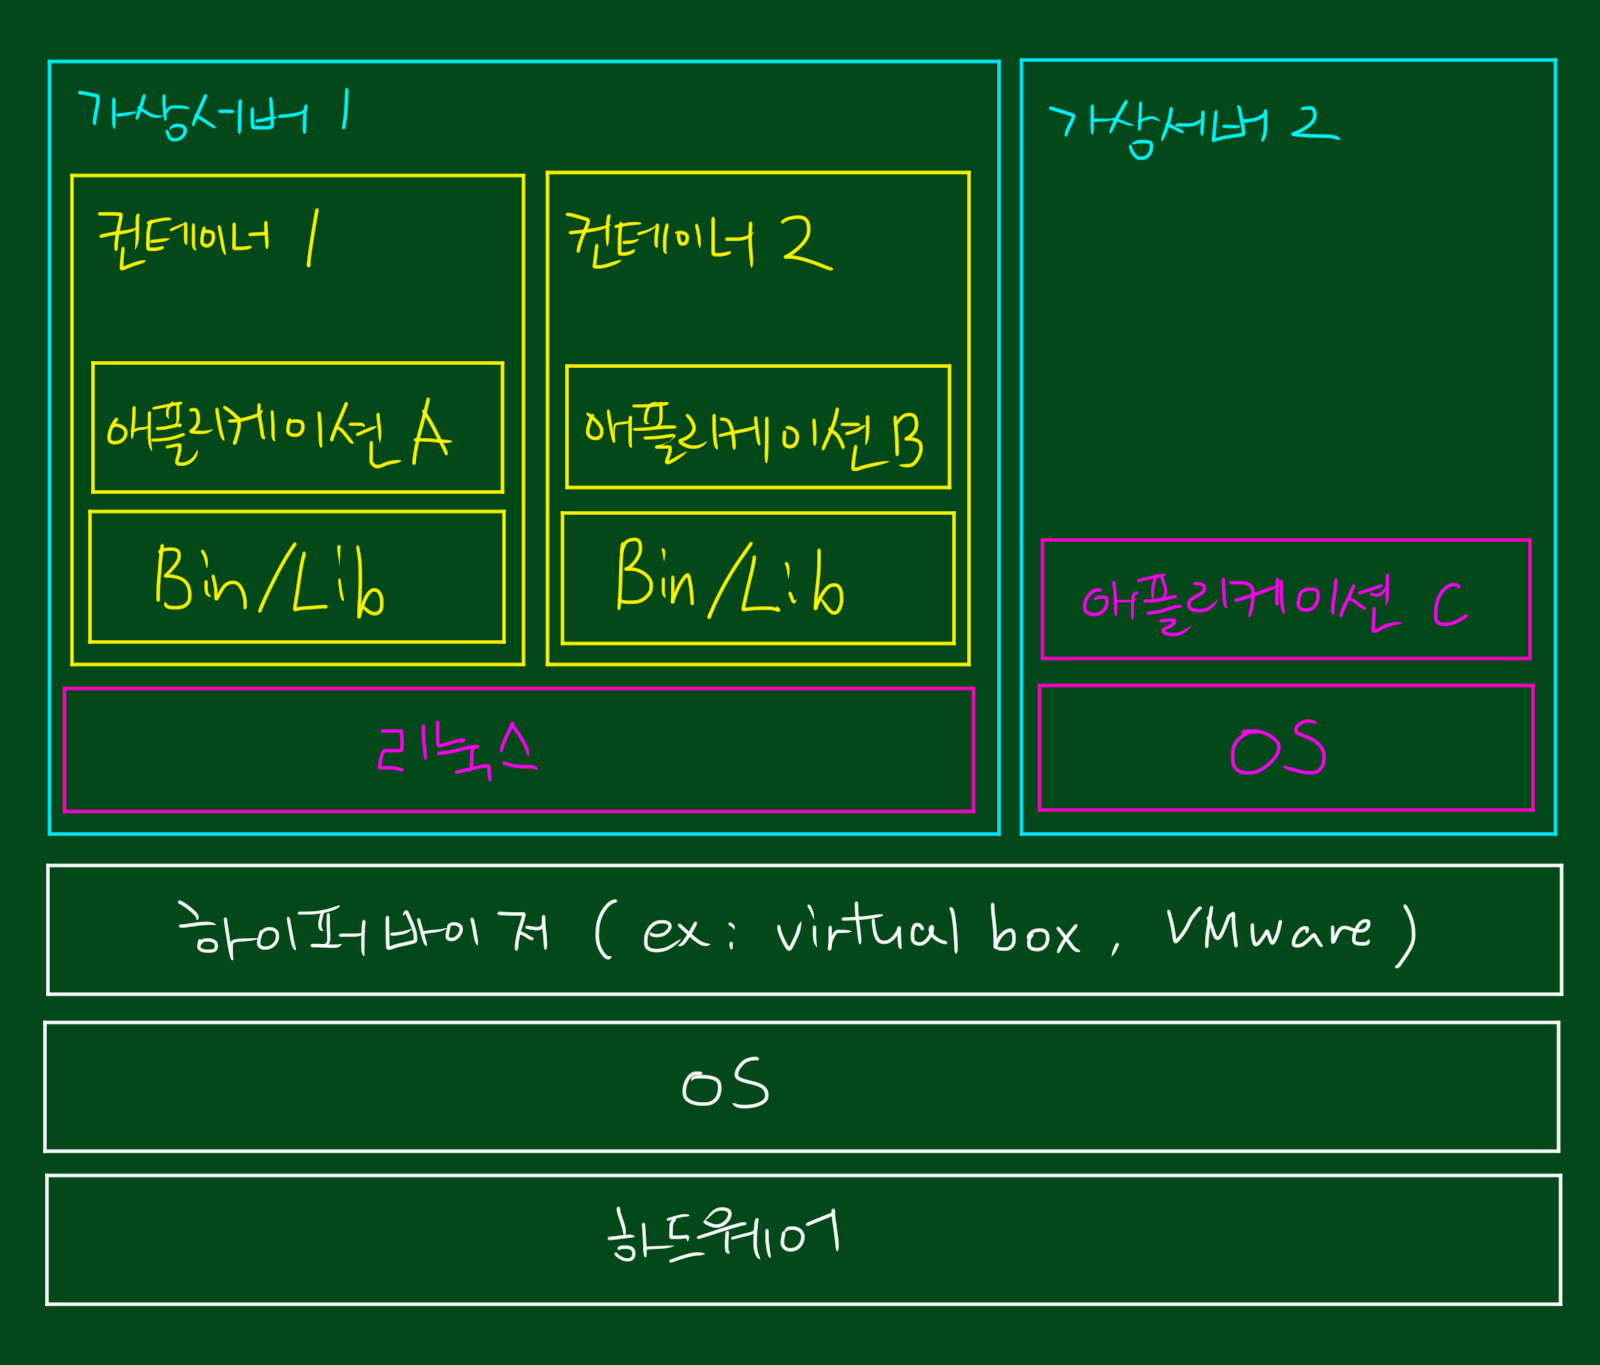 가상서버 1
컨테이너 1
애플리케이션 A
Bin/Lib
컨테이너 2
애플리케이션 B
Bin/Lib
리눅스
가상서버 2
애플리케이션 C
OS
하이퍼바이저 ( ex : virtual box , VMware )
OS
하드웨어